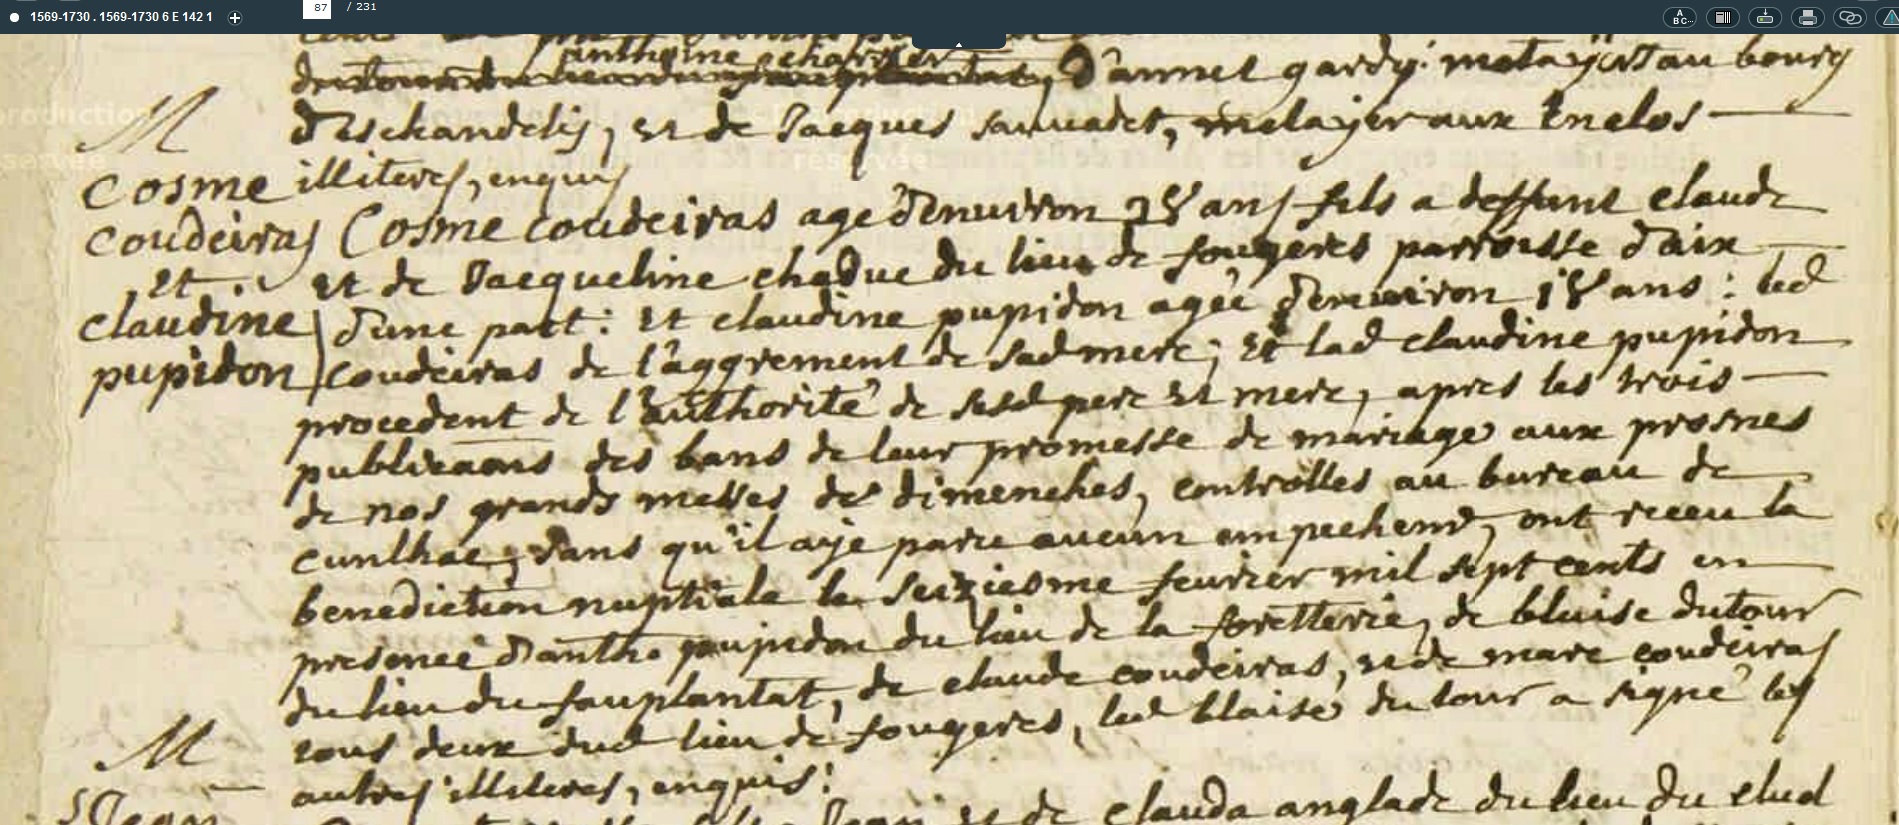 1569-1730 . 1569-1730 6 E 142 1
87 / 231
anthoine
d'annet gardy: metayer au bourg
M
d'eschandelis, et de Jacques sauvadet, metayer aux Enclos
illiteres, enquis
Cosme coudeiras et claudine pupidon
Cosme coudeiras agé d'environ 28 ans fils a deffunt claude
et de Jacqueline chadue du lieu de fougeres parroisse d'aix
d'une part: et claudine pupidon agée d'environ 18 ans: led
coudeiras de l'aggrement de sad mere; et lad claudine pupidon
procedent de l'authorité de sesd pere et mere, apres les trois
publicaons des bans de leur promesse de mariage aux prosnes
de nos grands messes de dimenches, controlles au bureau de
cunlhac, sans qu'il aye paru aucun empechemt, ont receu la
benediction nuptiale le seiziesme feuvrier mil sept cents en
presence d'antho. pupidon du lieu de la foretterie, de blaise dutour
du lieu du fauplantat, de claude coudeiras, et de marc coudeiras
tous deux dud lieu de fougeres, led blaise du tour a signé les
autres illiteres, enquis:
M
Jean
Jean et de clauda anglade du lieu du